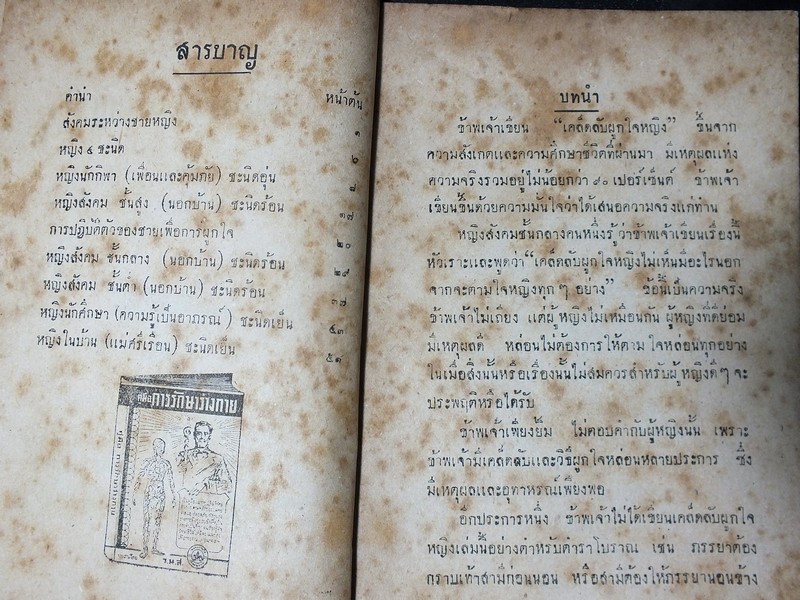 สารบาญ
คำนำ หน้าต้น
สังคมระหว่างชายหญิง ๑
หญิง ๔ ชะนิด ๒
หญิงนักกิฬา (เพื่อนและคุ้มภัย) ชะนิดอุ่น ๘
หญิงสังคม ชั้นสูง (นอกบ้าน) ชะนิดร้อน ๑๗
การปฏิบัติตัวของชายเพื่อการผูกใจ ๒๐
หญิงสังคม ชั้นกลาง (นอกบ้าน) ชะนิดร้อน ๒๙
หญิงสังคม ชั้นต่ำ (นอกบ้าน) ชะนิดร้อน ๓๘
หญิงนักศึกษา (ความรู้เป็นอาภรณ์) ชะนิดเย็น ๔๓
หญิงในบ้าน (แม่ศรีเรือน) ชะนิดเย็น ๕๑
คู่มือการรักษาร่างกาย
ร.น.ส
บทนำ
ข้าพเจ้าเขียน “เคล็ดลับผูกใจหญิง” ขึ้นจาก
ความสังเกตและความศึกษาชีวิตที่ผ่านมา มีเหตุผลแห่ง
ความจริงรวมอยู่ไม่น้อยกว่า ๙๐ เปอร์เซ็นต์ ข้าพเจ้า
เขียนขึ้นด้วยความมั่นใจว่าได้เสนอความจริงแก่ท่าน
หญิงสังคมชั้นกลางคนหนึ่งรู้ว่าข้าพเจ้าเขียนเรื่องนี้
หัวเราะและพูดว่า “เคล็ดลับผูกใจหญิงไม่เห็นมีอะไรนอก
จากจะตามใจหญิงทุก ๆ อย่าง” ข้อนี้เป็นความจริง
ข้าพเจ้าไม่เถียง แต่ผู้หญิงไม่เหมือนกัน ผู้หญิงที่ดีย่อม
มีเหตุผลดี หล่อนไม่ต้องการให้ตามใจหล่อนทุกอย่าง
ในเมื่อสิ่งนั้นหรือเรื่องนั้นไม่สมควรสำหรับผู้หญิงดี ๆ จะ
ประพฤติหรือได้รับ
ข้าพเจ้าเพียงยิ้ม ไม่ตอบคำกับผู้หญิงนั้น เพราะ
ข้าพเจ้ามีเคล็ดลับและวิธีผูกใจหล่อนหลายประการ ซึ่ง
มีเหตุผลและอุทาหรณ์เพียงพอ
อีกประการหนึ่ง ข้าพเจ้าไม่ได้เขียนเคล็ดลับผูกใจ
หญิงเล่มนี้อย่างตำหรับตำราโบราณ เช่น ภรรยาต้อง
กราบเท้าสามีก่อนนอน หรือสามีต้องให้ภรรยานอนข้าง